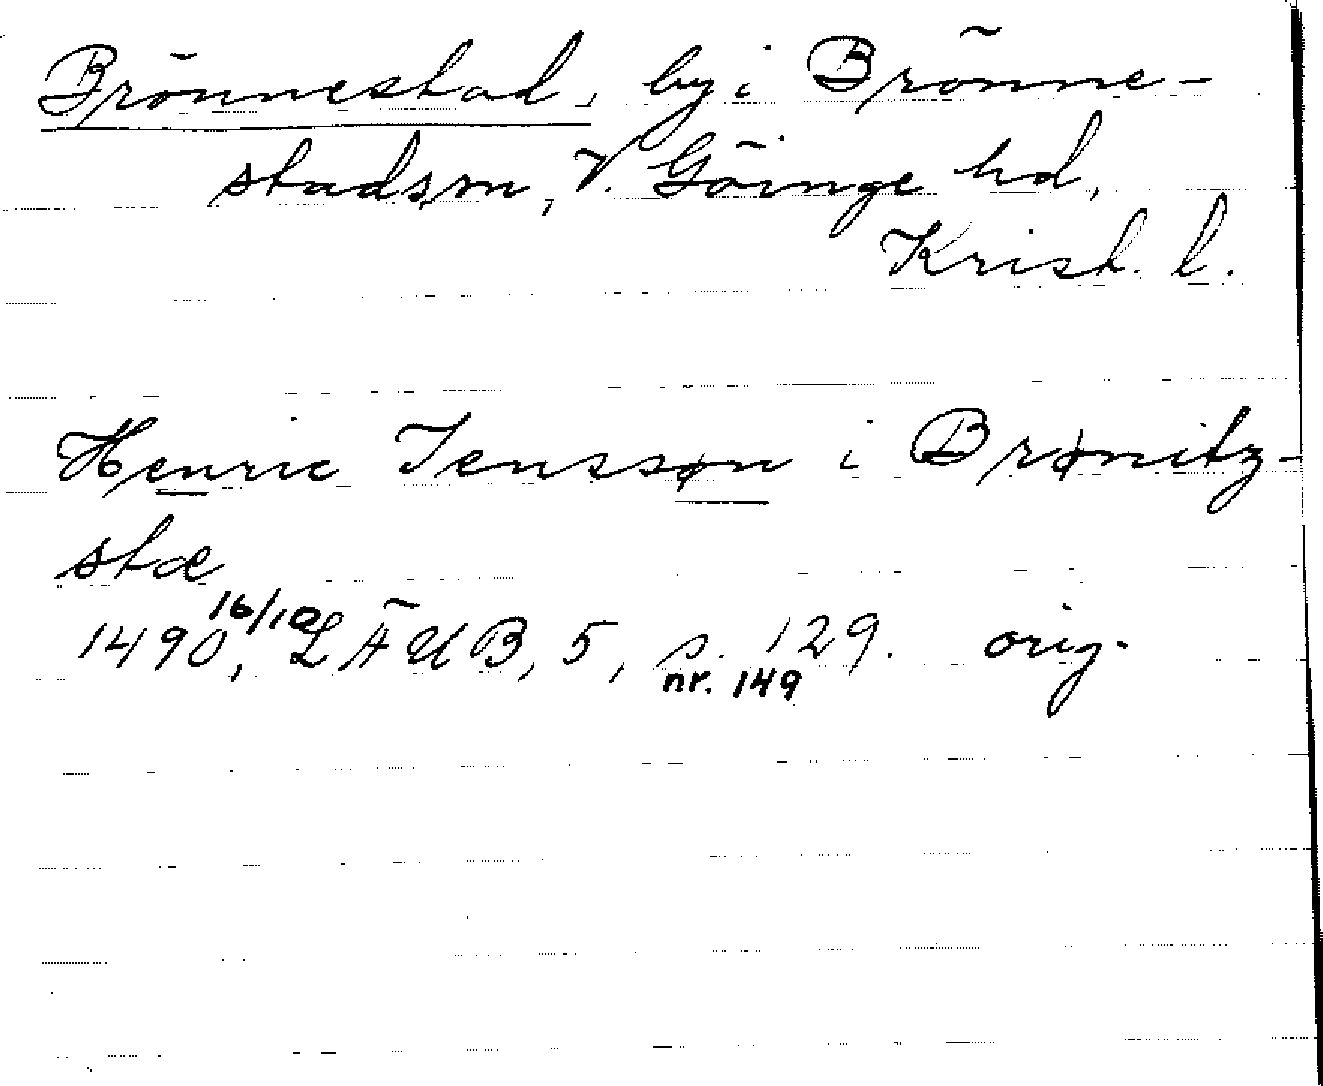 Brönnestad, by i Brönne-
stads sn, V. Göinge hd,
Krist. l.
Henric Jenssøn i Brønitz-
stæ
1490 16/10, LÄUB, 5, s. 129. orig.
nr. 149